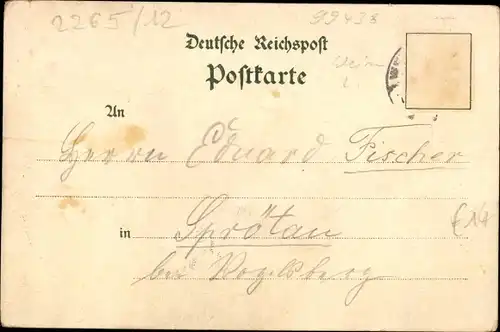 2265/12
99435
Deutsche Reichspost
Postkarte
An
Herrn Eduard Fischer
in Sprötau
bei Vogelsberg
£14